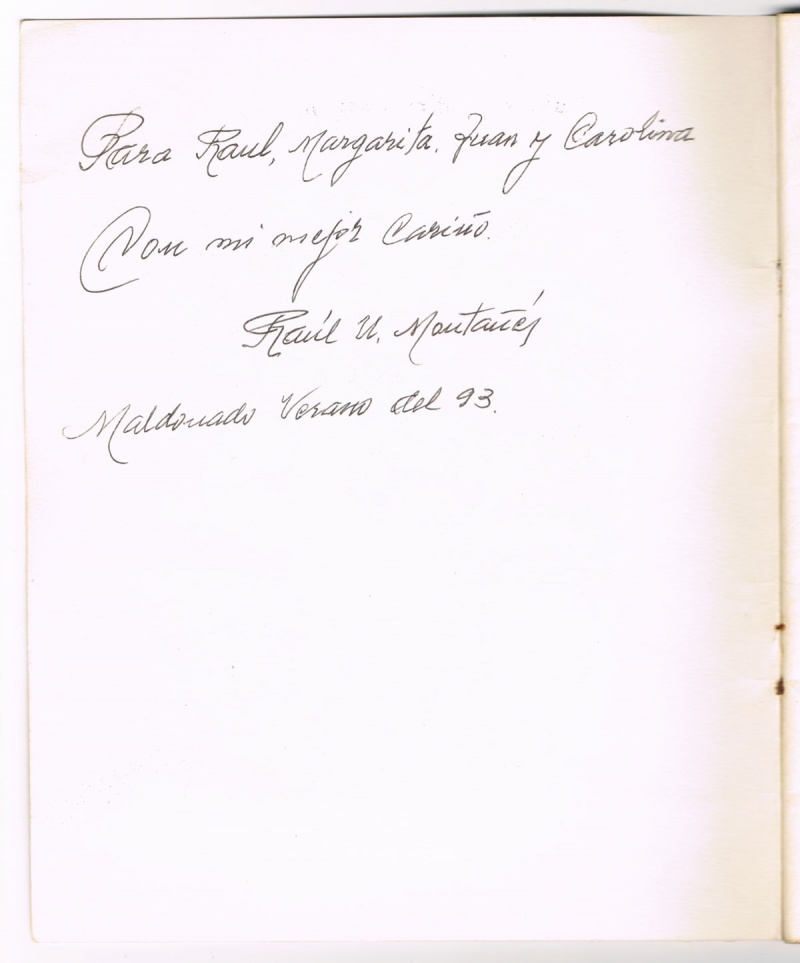 Para Raul, Margarita. Juan y Carolina
Con mi mejor Cariño.
Raúl U. Montañés
Maldonado Verano del 93.